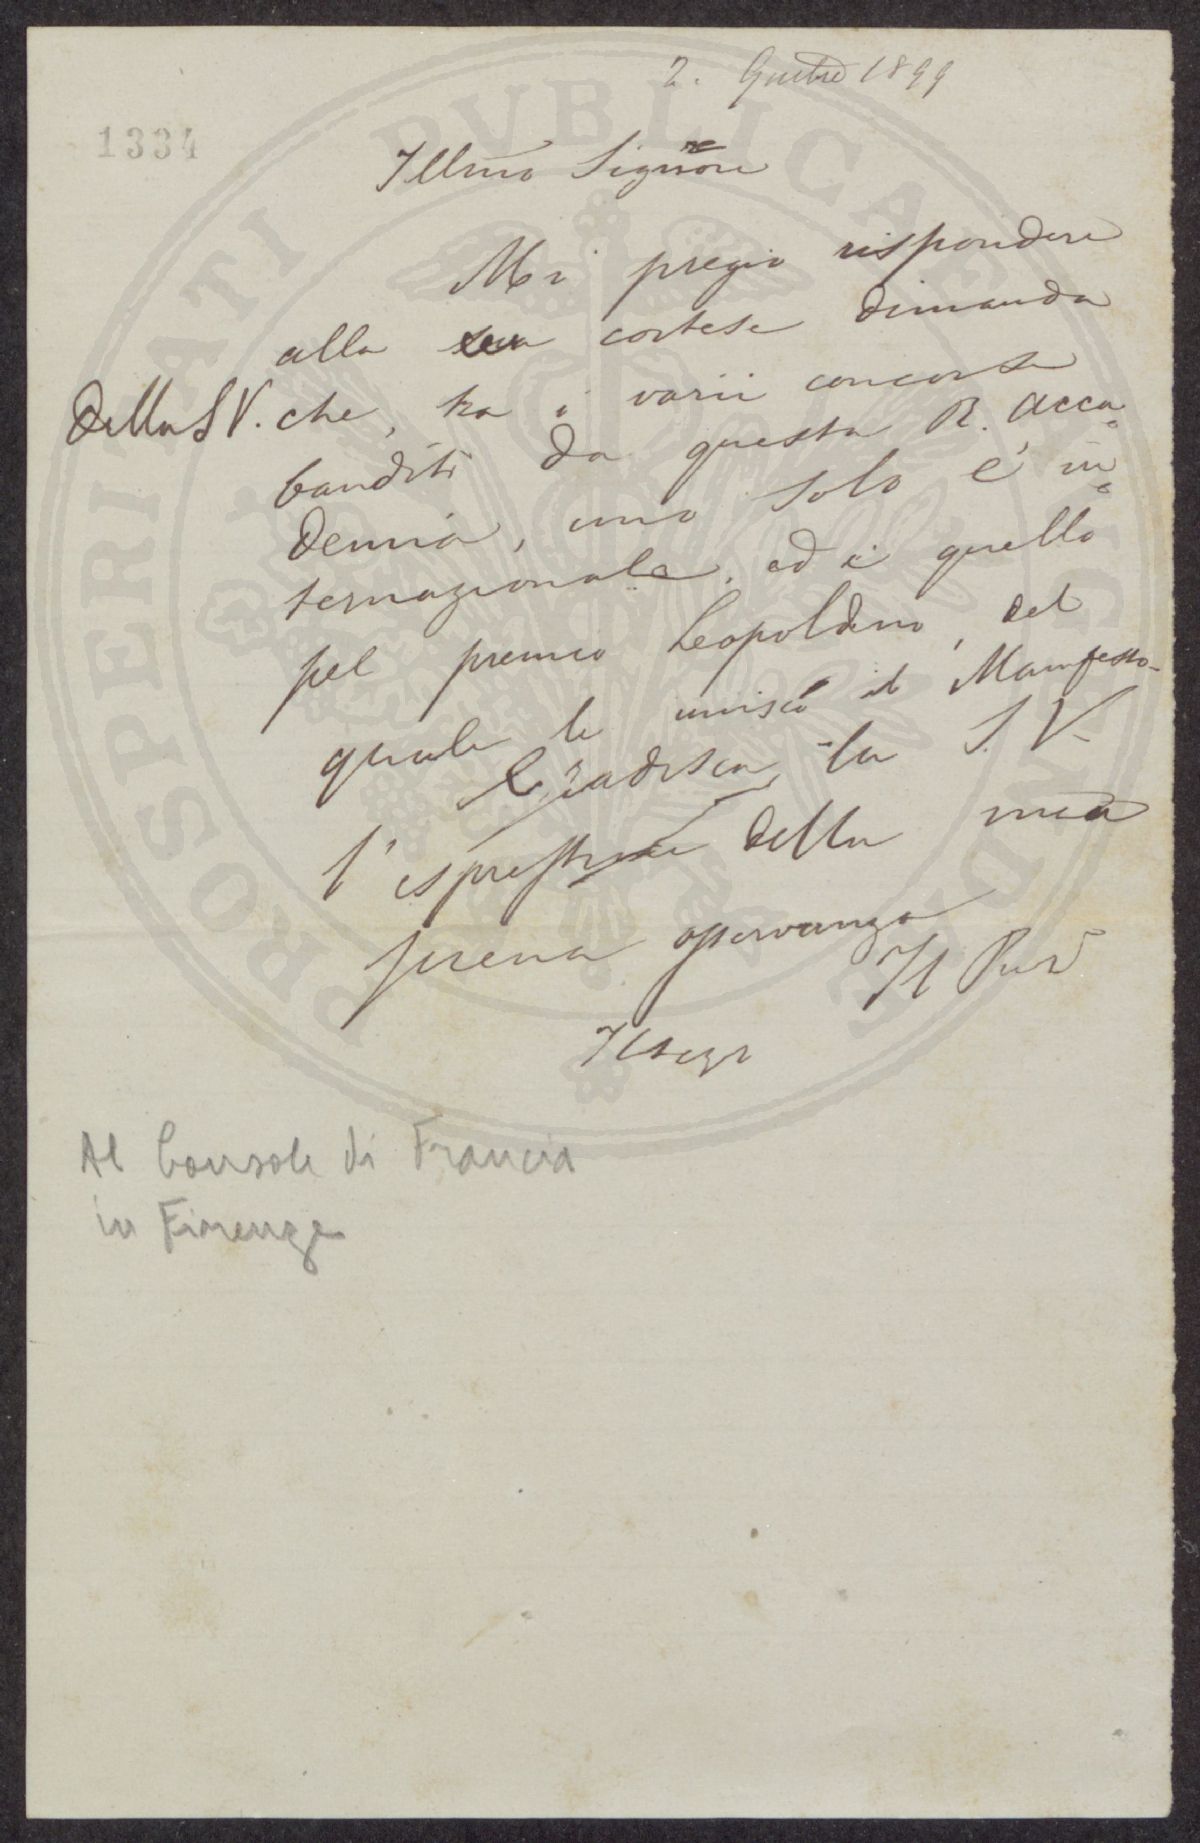 2. Giugno 1899
1334
Illmo Signore
Mi pregio rispondere
alla cortese dimanda
della S V. che, tra i varii concorsi
banditi da questa R. Acca=
demia, uno solo è in=
ternazionale, ed è quello
pel premio Leopoldino, del
quale le unisco il Manifesto.
Gradisca la S. V.
l'espressione della mia
piena osservanza
Il
Al Console di Francia
in Firenze
PROSPERITATI PVBLICAE AVGENDAE